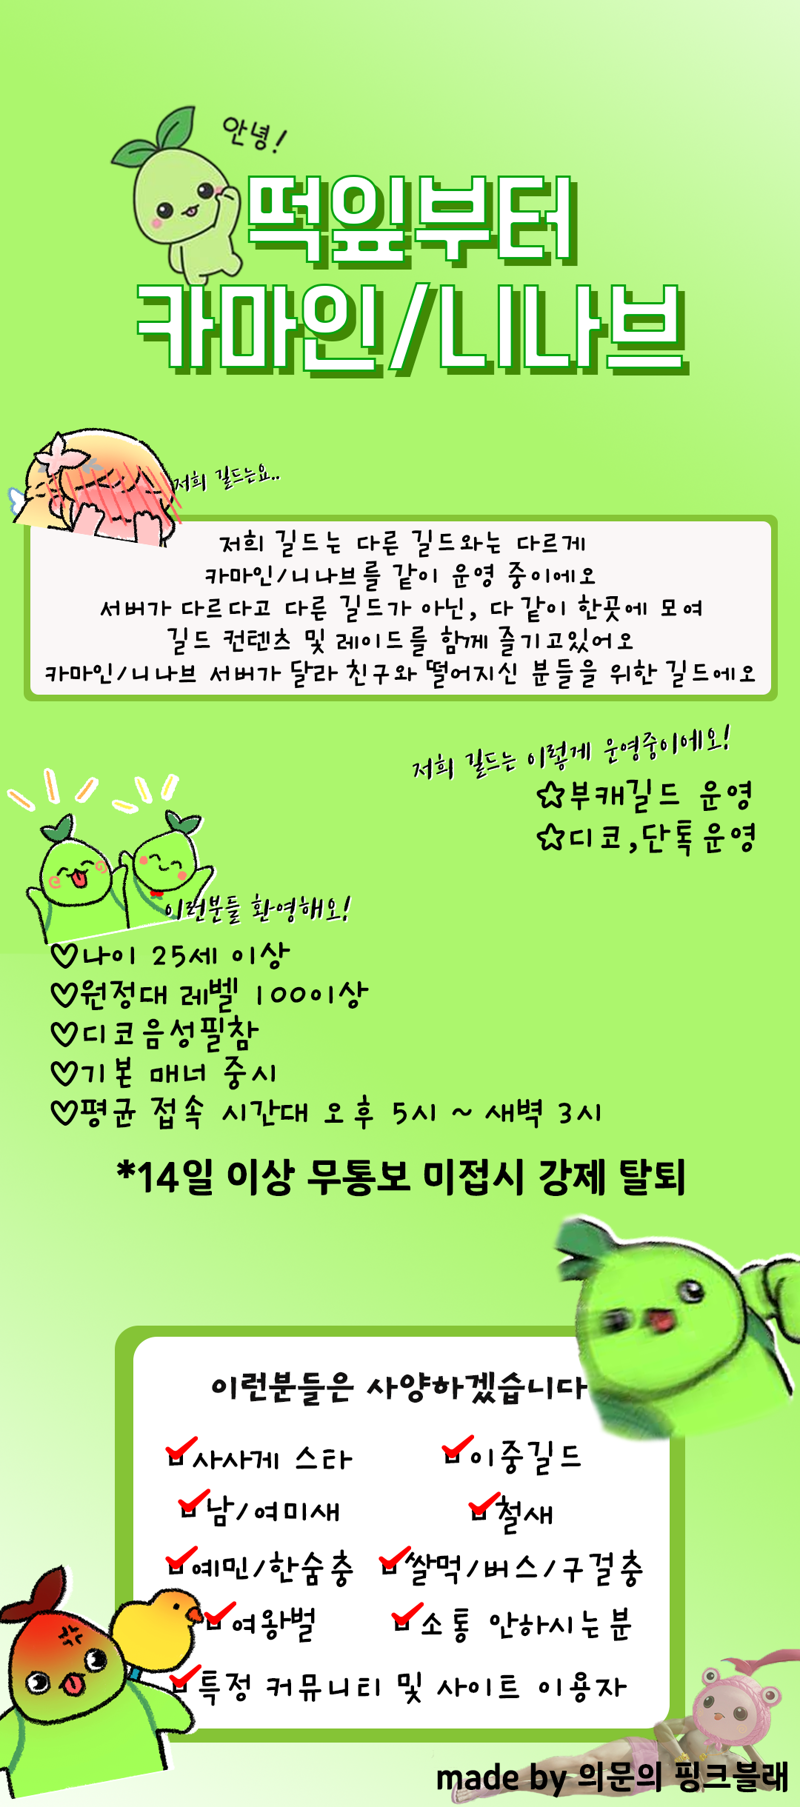 안녕!
떡잎부터
카마인/니나브
저희 길드는요..
저희 길드는 다른 길드와는 다르게
카마인/니나브를 같이 운영 중이에오
서버가 다르다고 다른 길드가 아닌, 다 같이 한곳에 모여
길드 컨텐츠 및 레이드를 함께 즐기고있어오
카마인/니나브 서버가 달라 친구와 떨어지신 분들을 위한 길드에오
저희 길드는 이렇게 운영중이에오!
☆부캐길드 운영
☆디코,단톡운영
이런분들 환영해요!
♡나이 25세 이상
♡원정대 레벨 100이상
♡디코음성필참
♡기본 매너 중시
♡평균 접속 시간대 오후 5시 ~ 새벽 3시
*14일 이상 무통보 미접시 강제 탈퇴
이런분들은 사양하겠습니다
사사게 스타
이중길드
남/여미새
철새
예민/한숨충
쌀먹/버스/구걸충
여왕벌
소통 안하시는분
특정 커뮤니티 및 사이트 이용자
made by 의문의 핑크블래